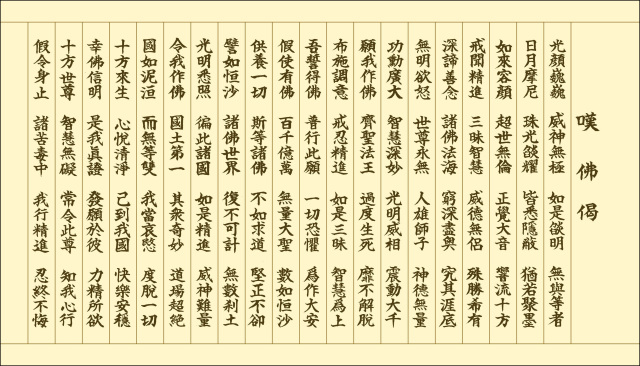 嘆佛偈
光顏巍巍 威神無極 如是燄明 無與等者
日月摩尼 珠光燄耀 皆悉隱蔽 猶若聚墨
如來容顏 超世無倫 正覺大音 響流十方
戒聞精進 三昧智慧 威德無侶 殊勝希有
深諦善念 諸佛法海 窮深盡奧 究其涯底
無明欲怒 世尊永無 人雄師子 神德無量
功勳廣大 智慧深妙 光明威相 震動大千
願我作佛 齊聖法王 過度生死 靡不解脫
布施調意 戒忍精進 如是三昧 智慧爲上
吾誓得佛 普行此願 一切恐懼 爲作大安
假使有佛 百千億萬 無量大聖 數如恒沙
供養一切 斯等諸佛 不如求道 堅正不卻
譬如恒沙 諸佛世界 復不可計 無數刹土
光明悉照 徧此諸國 如是精進 威神難量
令我作佛 國土第一 其衆奇妙 道場超絶
國如泥洹 而無等雙 我當哀愍 度脫一切
十方來生 心悅清淨 已到我國 快樂安穩
幸佛信明 是我眞證 發願於彼 力精所欲
十方世尊 智慧無礙 常令此尊 知我心行
假令身止 諸苦毒中 我行精進 忍終不悔